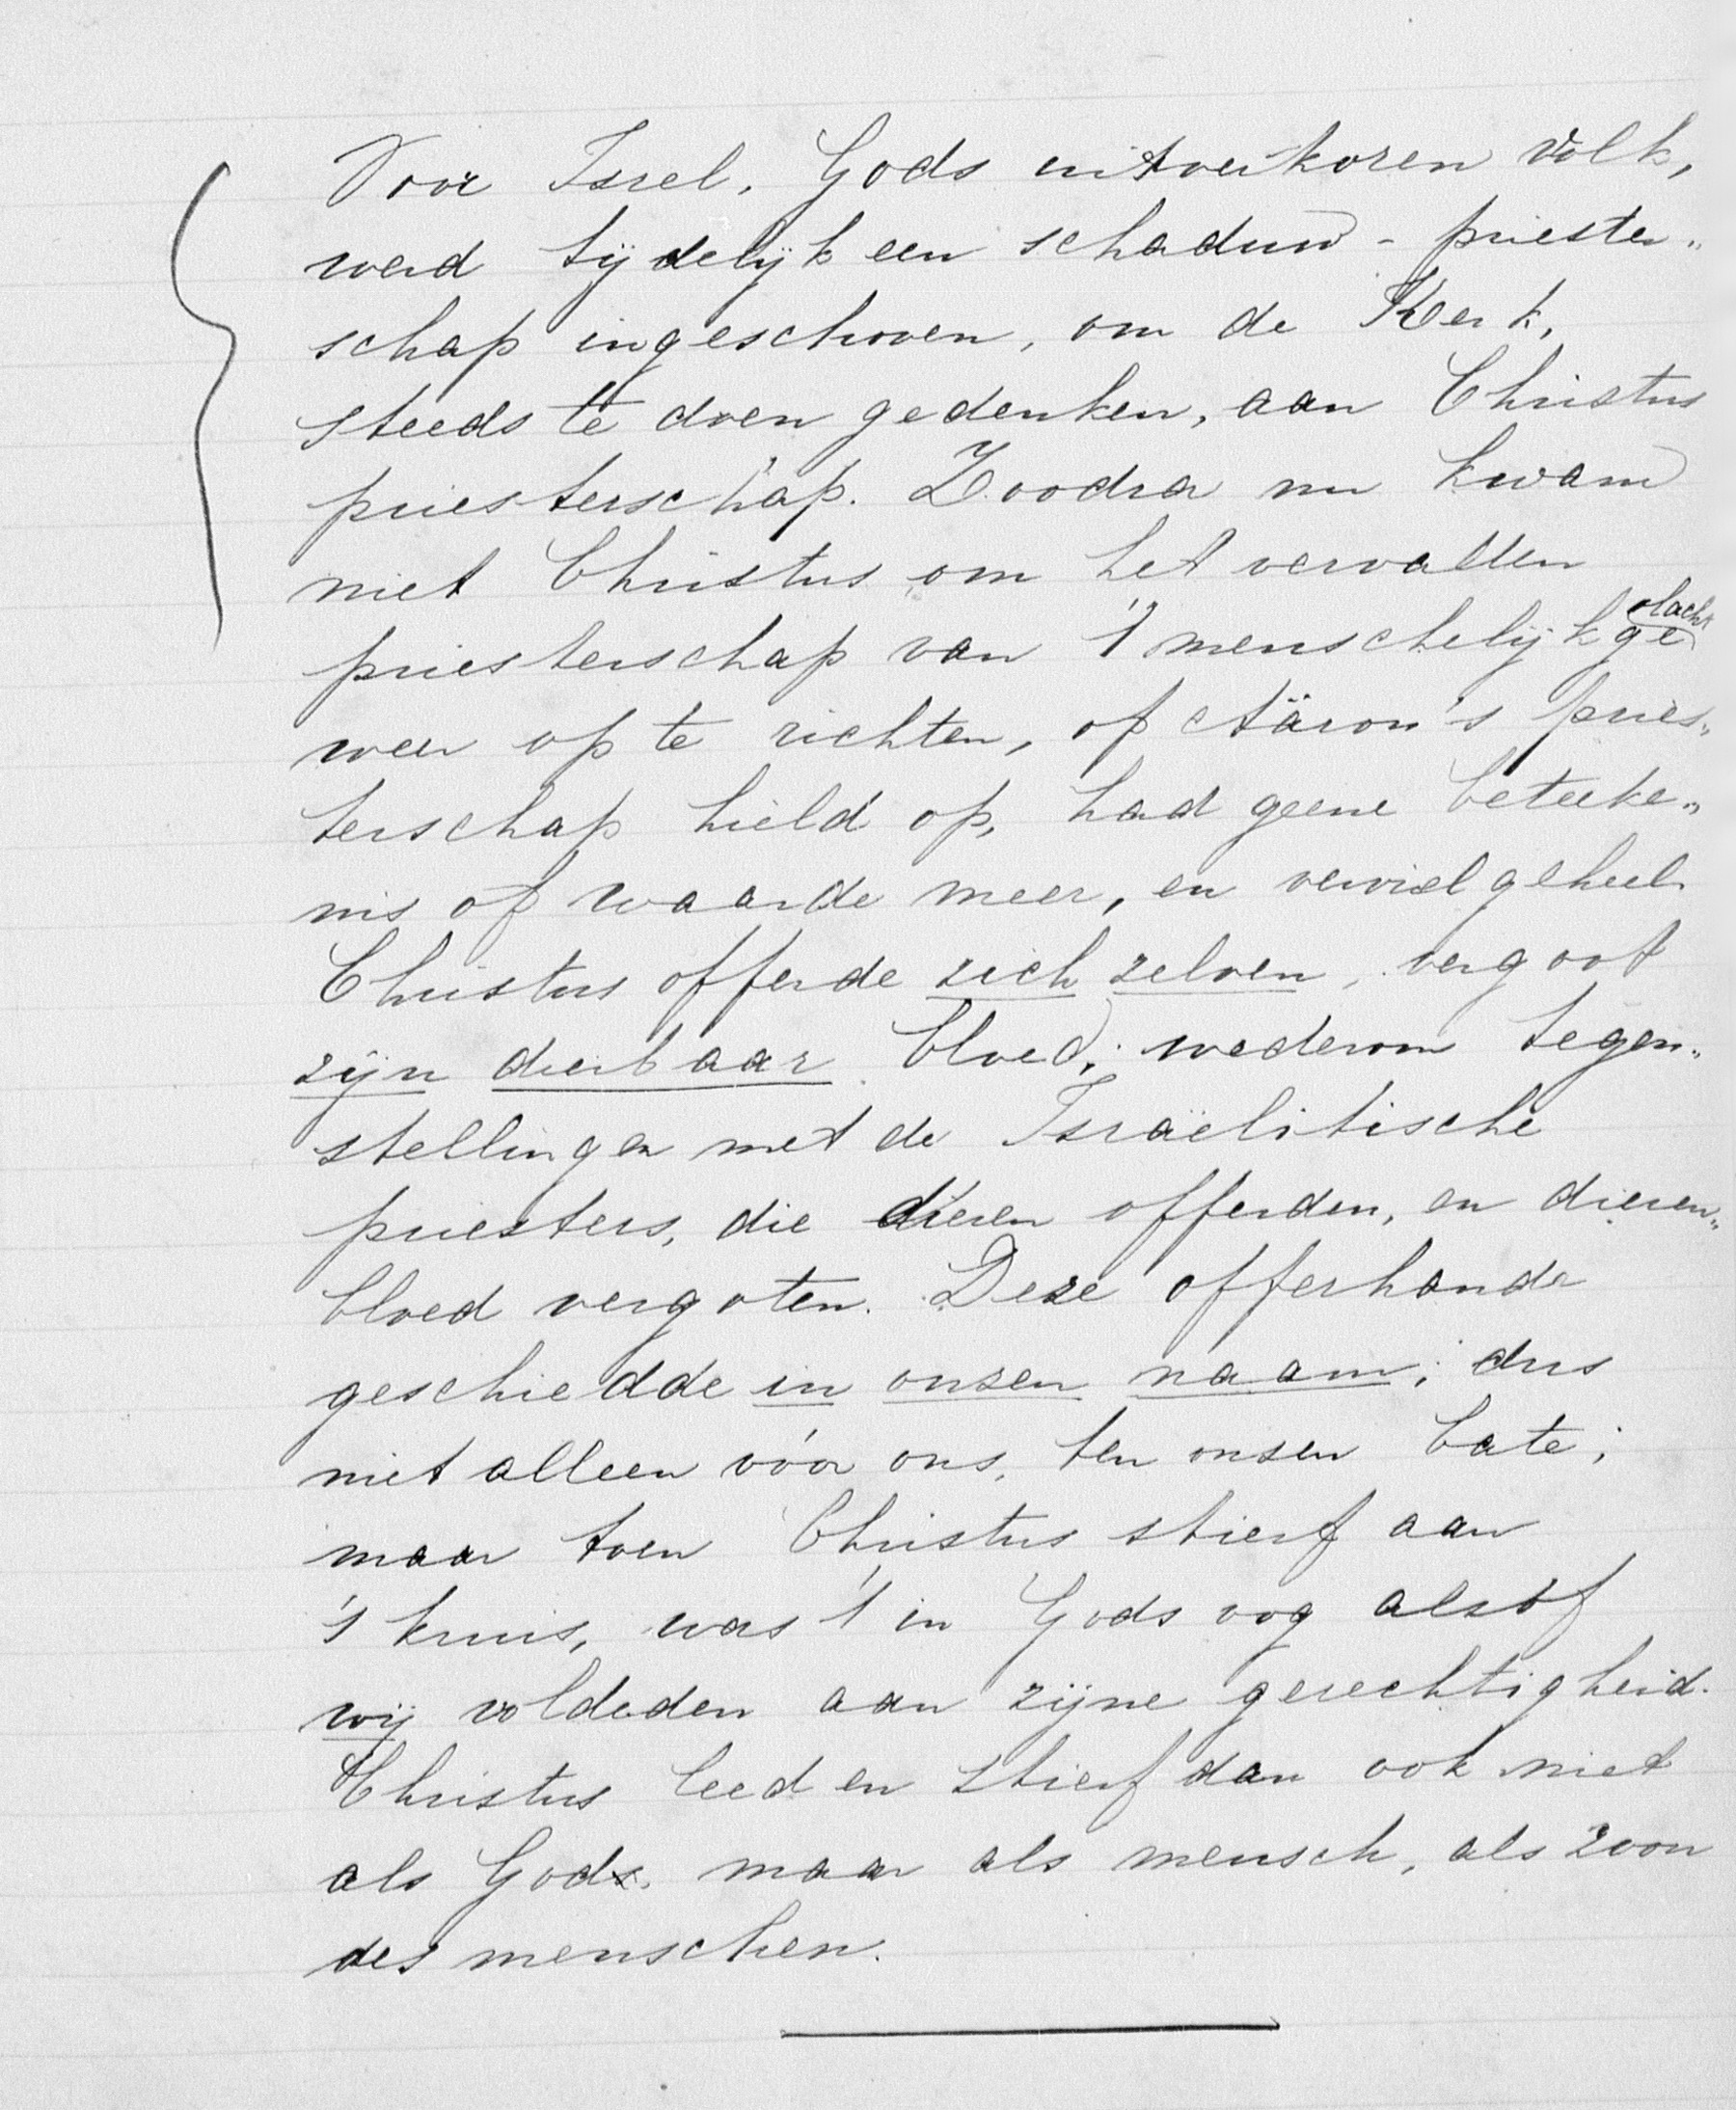 Voor Isrel, Gods uitverkoren volk,
werd tijdelijk een schaduw - priester„
schap ingeschoven, om de Kerk,
steeds te doen gedenken, aan Christus
priesterschap. Zoodra nu kwam
niet Christus om het vervallen
priesterschap van 't menschelijk geslacht
weer op te richten, of Aäron's pries„
terschap hield op, had geene beteeke„
nis of waarde meer, en verviel geheel.
Christus offerde zich zelven, vergoot
zijn dierbaar bloed; wederom tegen„
stellingen met de Israëlitische
priesters, die dieren offerden, en dieren„
bloed vergoten. Deze offerhande
geschiedde in onzen naam; dus
niet alleen vóór ons, ten onzen bate;
maar toen Christus stierf aan
't kruis, was 't in Gods oog alsof
wij voldeden aan zijne gerechtigheid.
Christus leed en stierf dan ook niet
als God, maar als mensch, als zoon
des menschen.